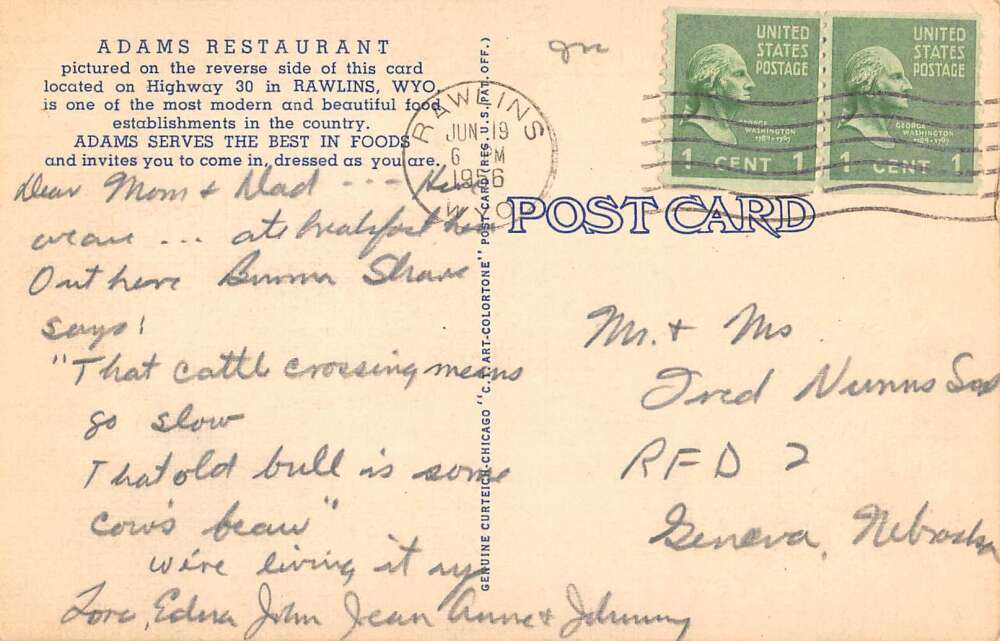 ADAMS RESTAURANT
pictured on the reverse side of this card
located on Highway 30 in RAWLINS, WYO.
is one of the most modern and beautiful food
establishments in the country.
ADAMS SERVES THE BEST IN FOODS
and invites you to come in, dressed as you are.
Dear Mom & Dad --- Here
we are ... ate breakfast here
Out here Burma Shave
says!
"That cattle crossing means
go slow
That old bull is some
cow's beau"
we're living it up
Love, Edna John Jean Anne & Johnny
GENUINE CURTEICH-CHICAGO "C.T. ART-COLORTONE" POST CARD (REG. U.S. PAT. OFF.)
RAWLINS
JUN 19
6 PM
1956
WYO
UNITED
STATES
POSTAGE
GEORGE
WASHINGTON
1789-1797
1 CENT 1
UNITED
STATES
POSTAGE
GEORGE
WASHINGTON
1789-1797
1 CENT 1
POST CARD
Mr. & Ms
Fred Nunns
RFD 2
Geneva, Nebraska